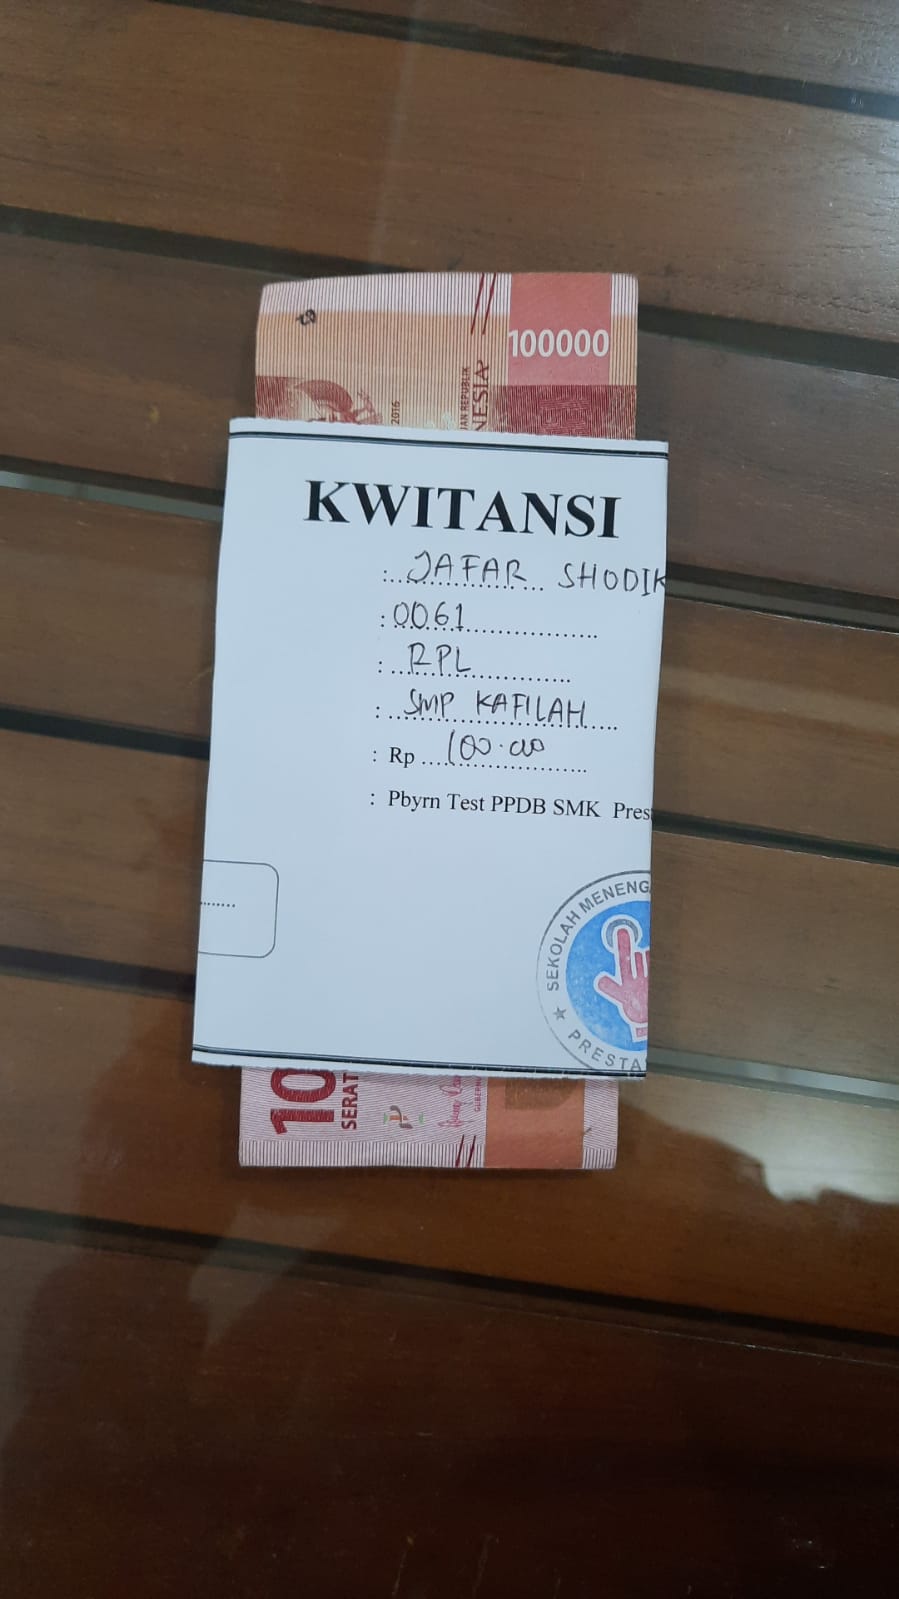 100000
2016
NESIA
KWITANSI
: JAFAR SHODIK
: 0061
: RPL
: SMP KAFILAH
: Rp 100.000
: Pbyrn Test PPDB SMK Pres
SEKOLAH MENENG
PRESTA
10
SERAT